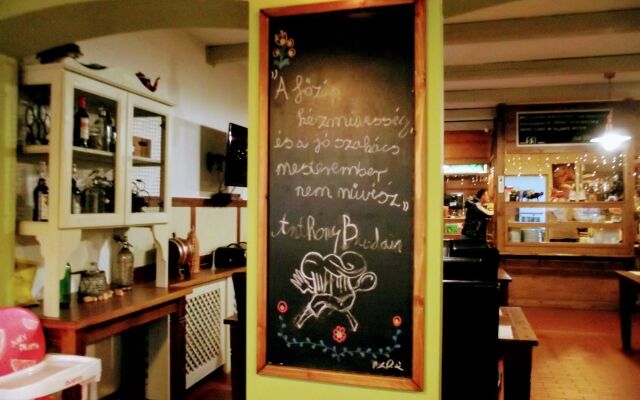 „A főzés
kézművesség,
és a jó szakács
mesterember
nem művész"
Anthony Bourdain